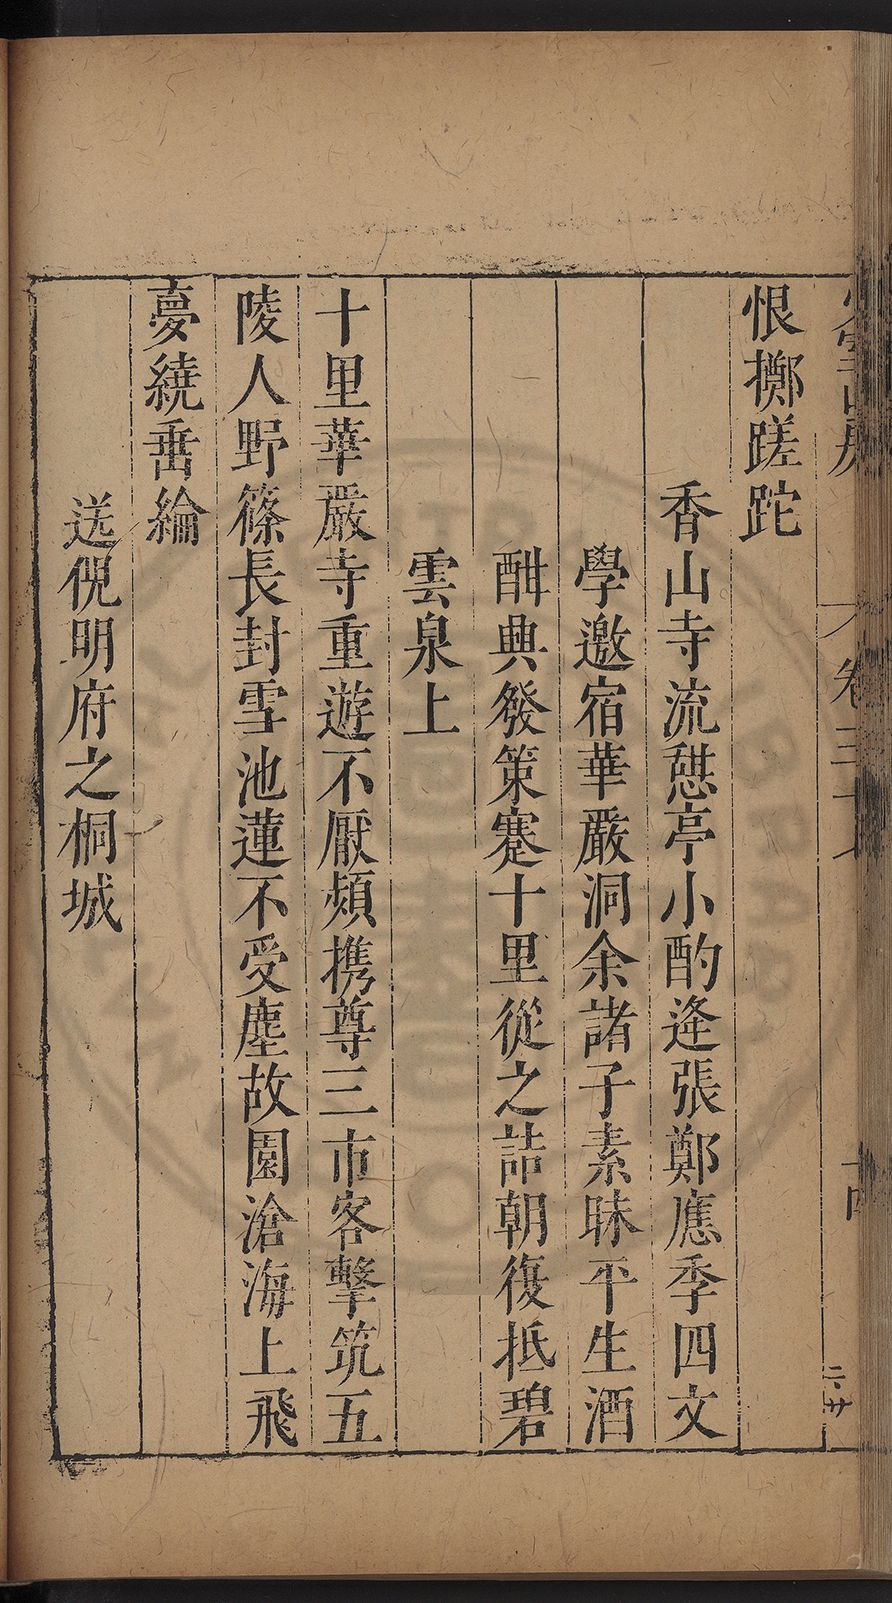 恨擲蹉跎
香山寺流憇亭小酌逄張鄭應季四文
學邀宿華嚴洞余諸子素昧平生酒
酣典發策蹇十里從之詰朝復抵碧
雲泉上
十里華嚴寺重遊不厭頻携尊三市客擊筑五
陵人野篠長封雪池蓮不受塵故園滄海上飛
夢繞垂綸
送倪明府之桐城